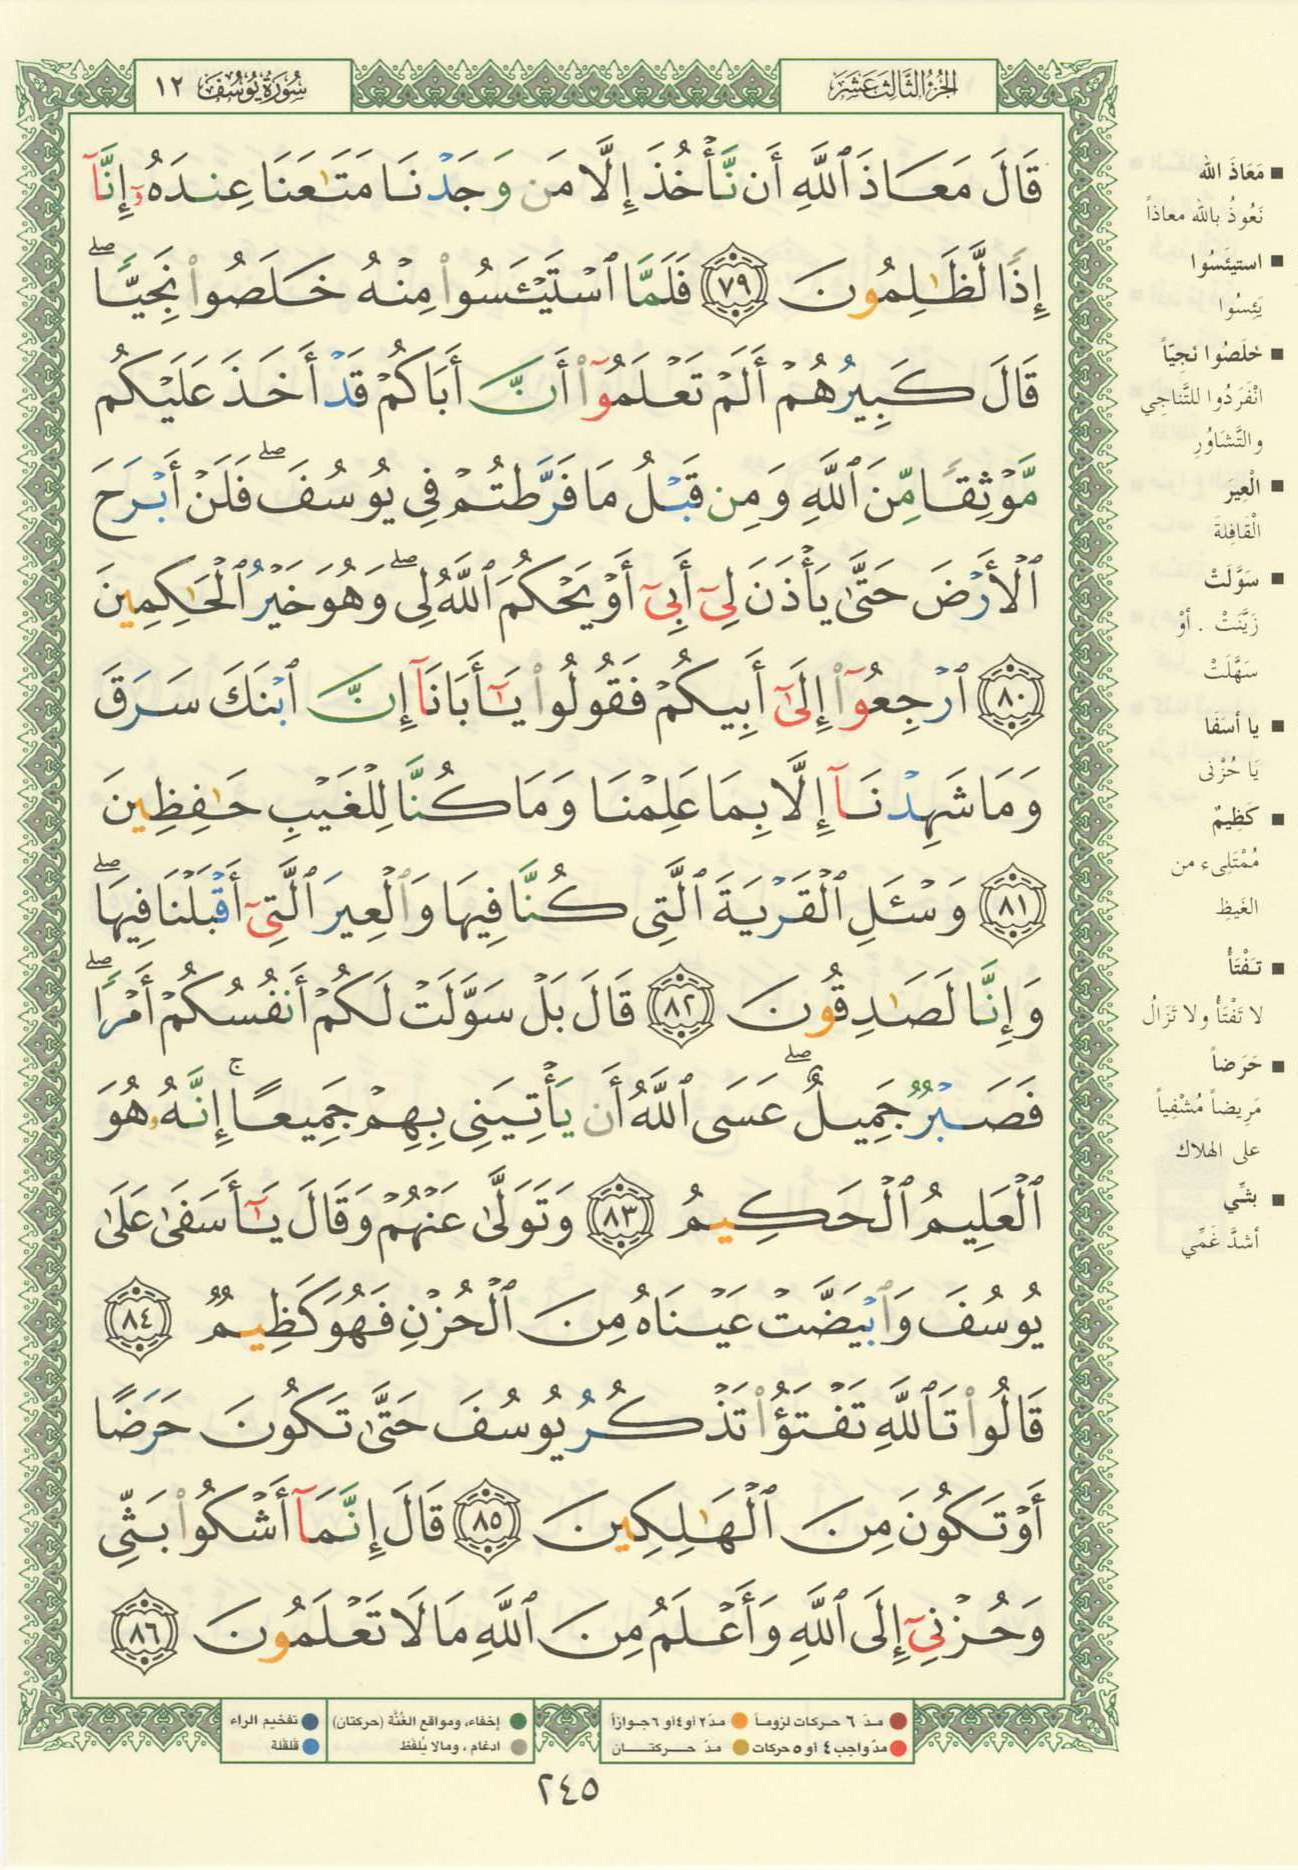 الجزء الثالث عشر
سورة يوسف ١٢
قَالَ مَعَاذَ ٱللَّهِ أَن نَّأْخُذَ إِلَّا مَن وَجَدْنَا مَتَـٰعَنَا عِندَهُۥٓ إِنَّآ
إِذًا لَّظَـٰلِمُونَ ٧٩ فَلَمَّا ٱسْتَيْـَٔسُوا۟ مِنْهُ خَلَصُوا۟ نَجِيًّا ۖ
قَالَ كَبِيرُهُمْ أَلَمْ تَعْلَمُوٓا۟ أَنَّ أَبَاكُمْ قَدْ أَخَذَ عَلَيْكُم
مَّوْثِقًا مِّنَ ٱللَّهِ وَمِن قَبْلُ مَا فَرَّطتُمْ فِى يُوسُفَ ۖ فَلَنْ أَبْرَحَ
ٱلْأَرْضَ حَتَّىٰ يَأْذَنَ لِىٓ أَبِىٓ أَوْ يَحْكُمَ ٱللَّهُ لِى ۖ وَهُوَ خَيْرُ ٱلْحَـٰكِمِينَ
٨٠ ٱرْجِعُوٓا۟ إِلَىٰٓ أَبِيكُمْ فَقُولُوا۟ يَـٰٓأَبَانَآ إِنَّ ٱبْنَكَ سَرَقَ
وَمَا شَهِدْنَآ إِلَّا بِمَا عَلِمْنَا وَمَا كُنَّا لِلْغَيْبِ حَـٰفِظِينَ
٨١ وَسْـَٔلِ ٱلْقَرْيَةَ ٱلَّتِى كُنَّا فِيهَا وَٱلْعِيرَ ٱلَّتِىٓ أَقْبَلْنَا فِيهَا ۖ
وَإِنَّا لَصَـٰدِقُونَ ٨٢ قَالَ بَلْ سَوَّلَتْ لَكُمْ أَنفُسُكُمْ أَمْرًا ۖ
فَصَبْرٌ جَمِيلٌ ۖ عَسَى ٱللَّهُ أَن يَأْتِيَنِى بِهِمْ جَمِيعًا ۚ إِنَّهُۥ هُوَ
ٱلْعَلِيمُ ٱلْحَكِيمُ ٨٣ وَتَوَلَّىٰ عَنْهُمْ وَقَالَ يَـٰٓأَسَفَىٰ عَلَىٰ
يُوسُفَ وَٱبْيَضَّتْ عَيْنَاهُ مِنَ ٱلْحُزْنِ فَهُوَ كَظِيمٌ ٨٤
قَالُوا۟ تَٱللَّهِ تَفْتَؤُا۟ تَذْكُرُ يُوسُفَ حَتَّىٰ تَكُونَ حَرَضًا
أَوْ تَكُونَ مِنَ ٱلْهَـٰلِكِينَ ٨٥ قَالَ إِنَّمَآ أَشْكُوا۟ بَثِّى
وَحُزْنِىٓ إِلَى ٱللَّهِ وَأَعْلَمُ مِنَ ٱللَّهِ مَا لَا تَعْلَمُونَ ٨٦
مَعَاذَ الله
نَعُوذُ بالله معاذاً
استيئَسُوا
يَئِسُوا
خَلَصُوا نَجِيّاً
انْفَرَدُوا للتَّناجِي
والتَّشَاوُرِ
الْعِيرَ
الْقَافِلةَ
سَوَّلَتْ
زَيَّنَتْ . أوْ
سَهَّلَتْ
يا أسَفا
يَا حُزْنى
كَظِيمٌ
مُمْتَلِىء من
الغَيظِ
تَفْتَأُ
لا تَفْتَأُ ولا تَزَالُ
حَرَضاً
مَرِيضاً مُشْفِياً
على الهلاك
بثِّي
أشدَّ غَمِّي
مدّ ٦ حركات لزوماً مدّ ٢ أو ٤ أو ٦ جوازاً إخفاء، ومواقع الغُنَّة (حركتان) تفخيم الراء
مدّ واجب ٤ أو ٥ حركات مدّ حركتان ادغام، ومالا يُلفَظ قلقلة
٢٤٥